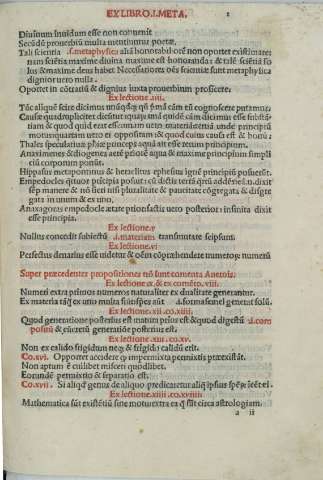 EX LIBRO .I. META. 1
Diuinum inuidum esse non conuenit
Secūdū prouerbiū multa mentiuntur poetæ.
Tali scientia .s. metaphysica aliā honorabiliorē non oportet existimare:
nam sciētia maxime diuina maxime est honoranda: & talē sciētiā so
lus & maxime deus habet Necessariores oēs sciētiæ sunt metaphysica
dignior uero nulla.
Oportet in cōtrariū & dignius iuxta prouerbium proficere.
Ex lectione .iiii.
Tūc aliquē scire dicimus unūquodq; qn̄ primā cām eū cognoscere putamus.
Causæ quadrupliciter dicūtur: quarū unā quidē cām dicimus esse substā
tiam & quod quid erat esse: unam uero materiā: tertiā unde principiū
motus: quartam uero ei oppositam & quod cuius causa est & bonū:
Thales speculatiuæ phiæ princeps aquā ait esse rerum principium.
Anaximenes & diogenes aerē priorē aqua & maxime principium simpli
ciū corporum ponūt.
Hippasus metapontinus & heraclitus ephesius ignē principiū posuerūt.
Empedocles quatuor prīcipia posuit: cū dictis terrā qrtū addēs: hęc .n. dixit
semp manere & nō fieri nisi pluralitate & paucitate cōgregata & disgre
gata in unum & ex uno.
Anaxagoras empedocle ætate prior factis uero posterior: infinita dixit
esse principia.
Ex lectione .v
Nullus concedit subiectū .i. materiam transmutare seipsum.
Ex lectione .vi
Perfectus denarius esse uidetur & oēm cōprehendere numerorū numerū
Super præcedentes propositiones tm̄ sunt comenta Auerois.
Ex lectione .x. & ex comēto. viii.
Numeri extra primos numeros naturaliter ex dualitate generantur.
Ex materia tātū ex uno multa fiūt: spēs aūt .i. forma semel generat solū.
Ex lectione .xii. co. xiiii.
Quod generatione posterius est natura prius est & quod digestū .i. com
positū & secretū generatiōe posterius est.
Ex lectione .xiii. co. xv.
Non ex calido frigidum neq; ex frigido calidū erit.
Co. xvi. Oportet accidere q̄ impermixta permixtis præexistāt.
Non aptum ē cuilibet misceri quodlibet.
Eorundē permixtio & separatio est.
Co. xvii. Si aliqd̄ genus de aliquo predicaretur
Ex lectione .xiiii. co. xviiii.
Mathematica sūt existētiū sine motu: extra ea q̄ sūt circa astrologiam.
a ii